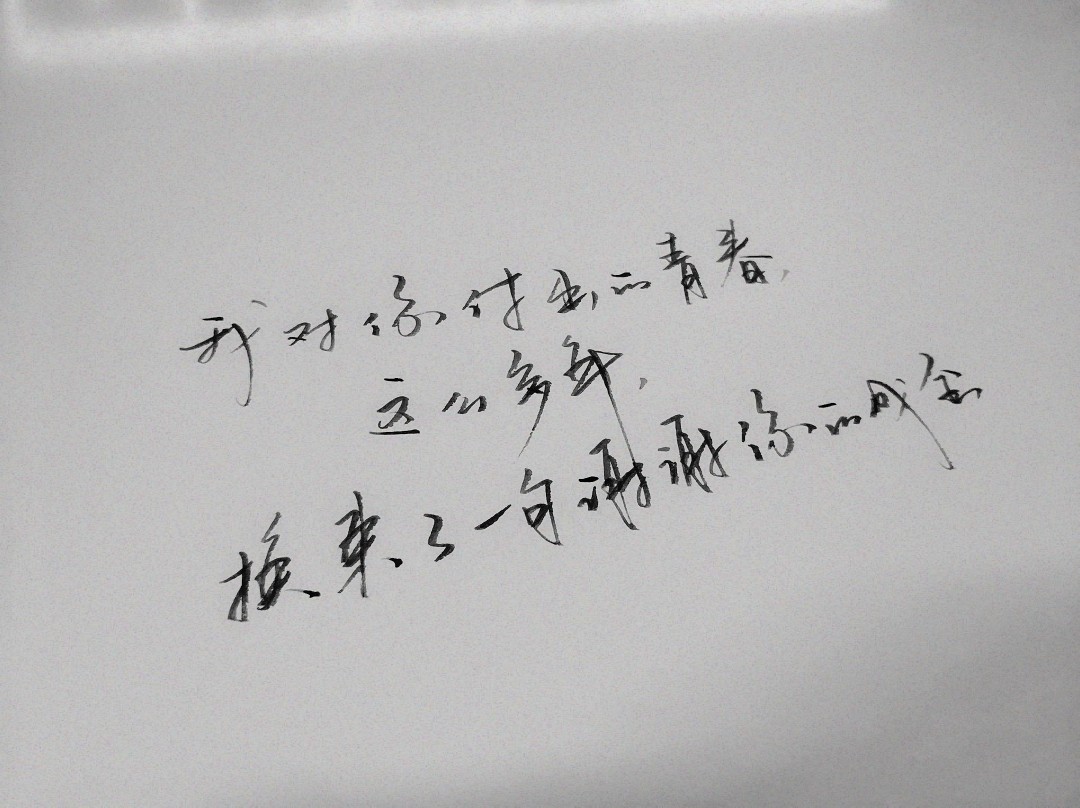 我对你付出的青春,
这么多年,
换来了一句谢谢你的成全